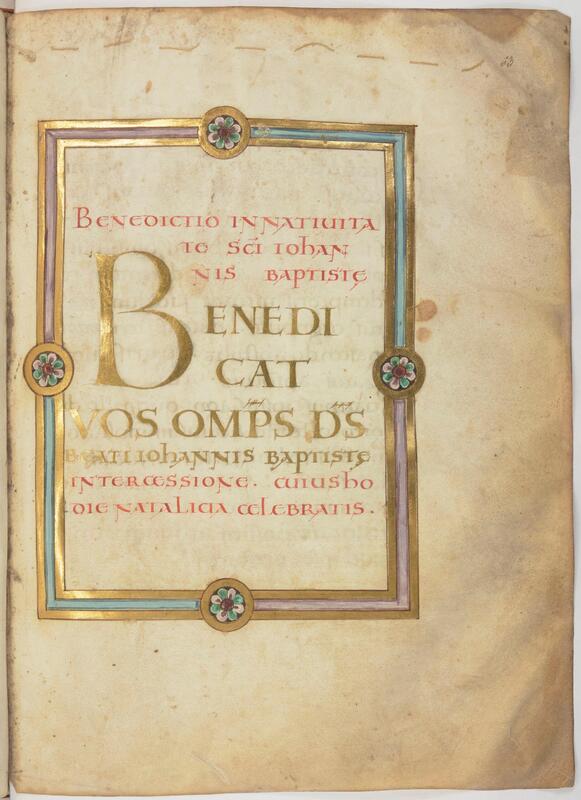 53
BENEDICTIO IN NATIUITA
TE SC̄I IOHAN
NIS BAPTISTĘ
BENEDI
CAT
VOS OMP̄S D̄S
BEATI IOHANNIS BAPTISTĘ
INTERCESSIONE. CUIUS HO
DIE NATALICIA CELEBRATIS.